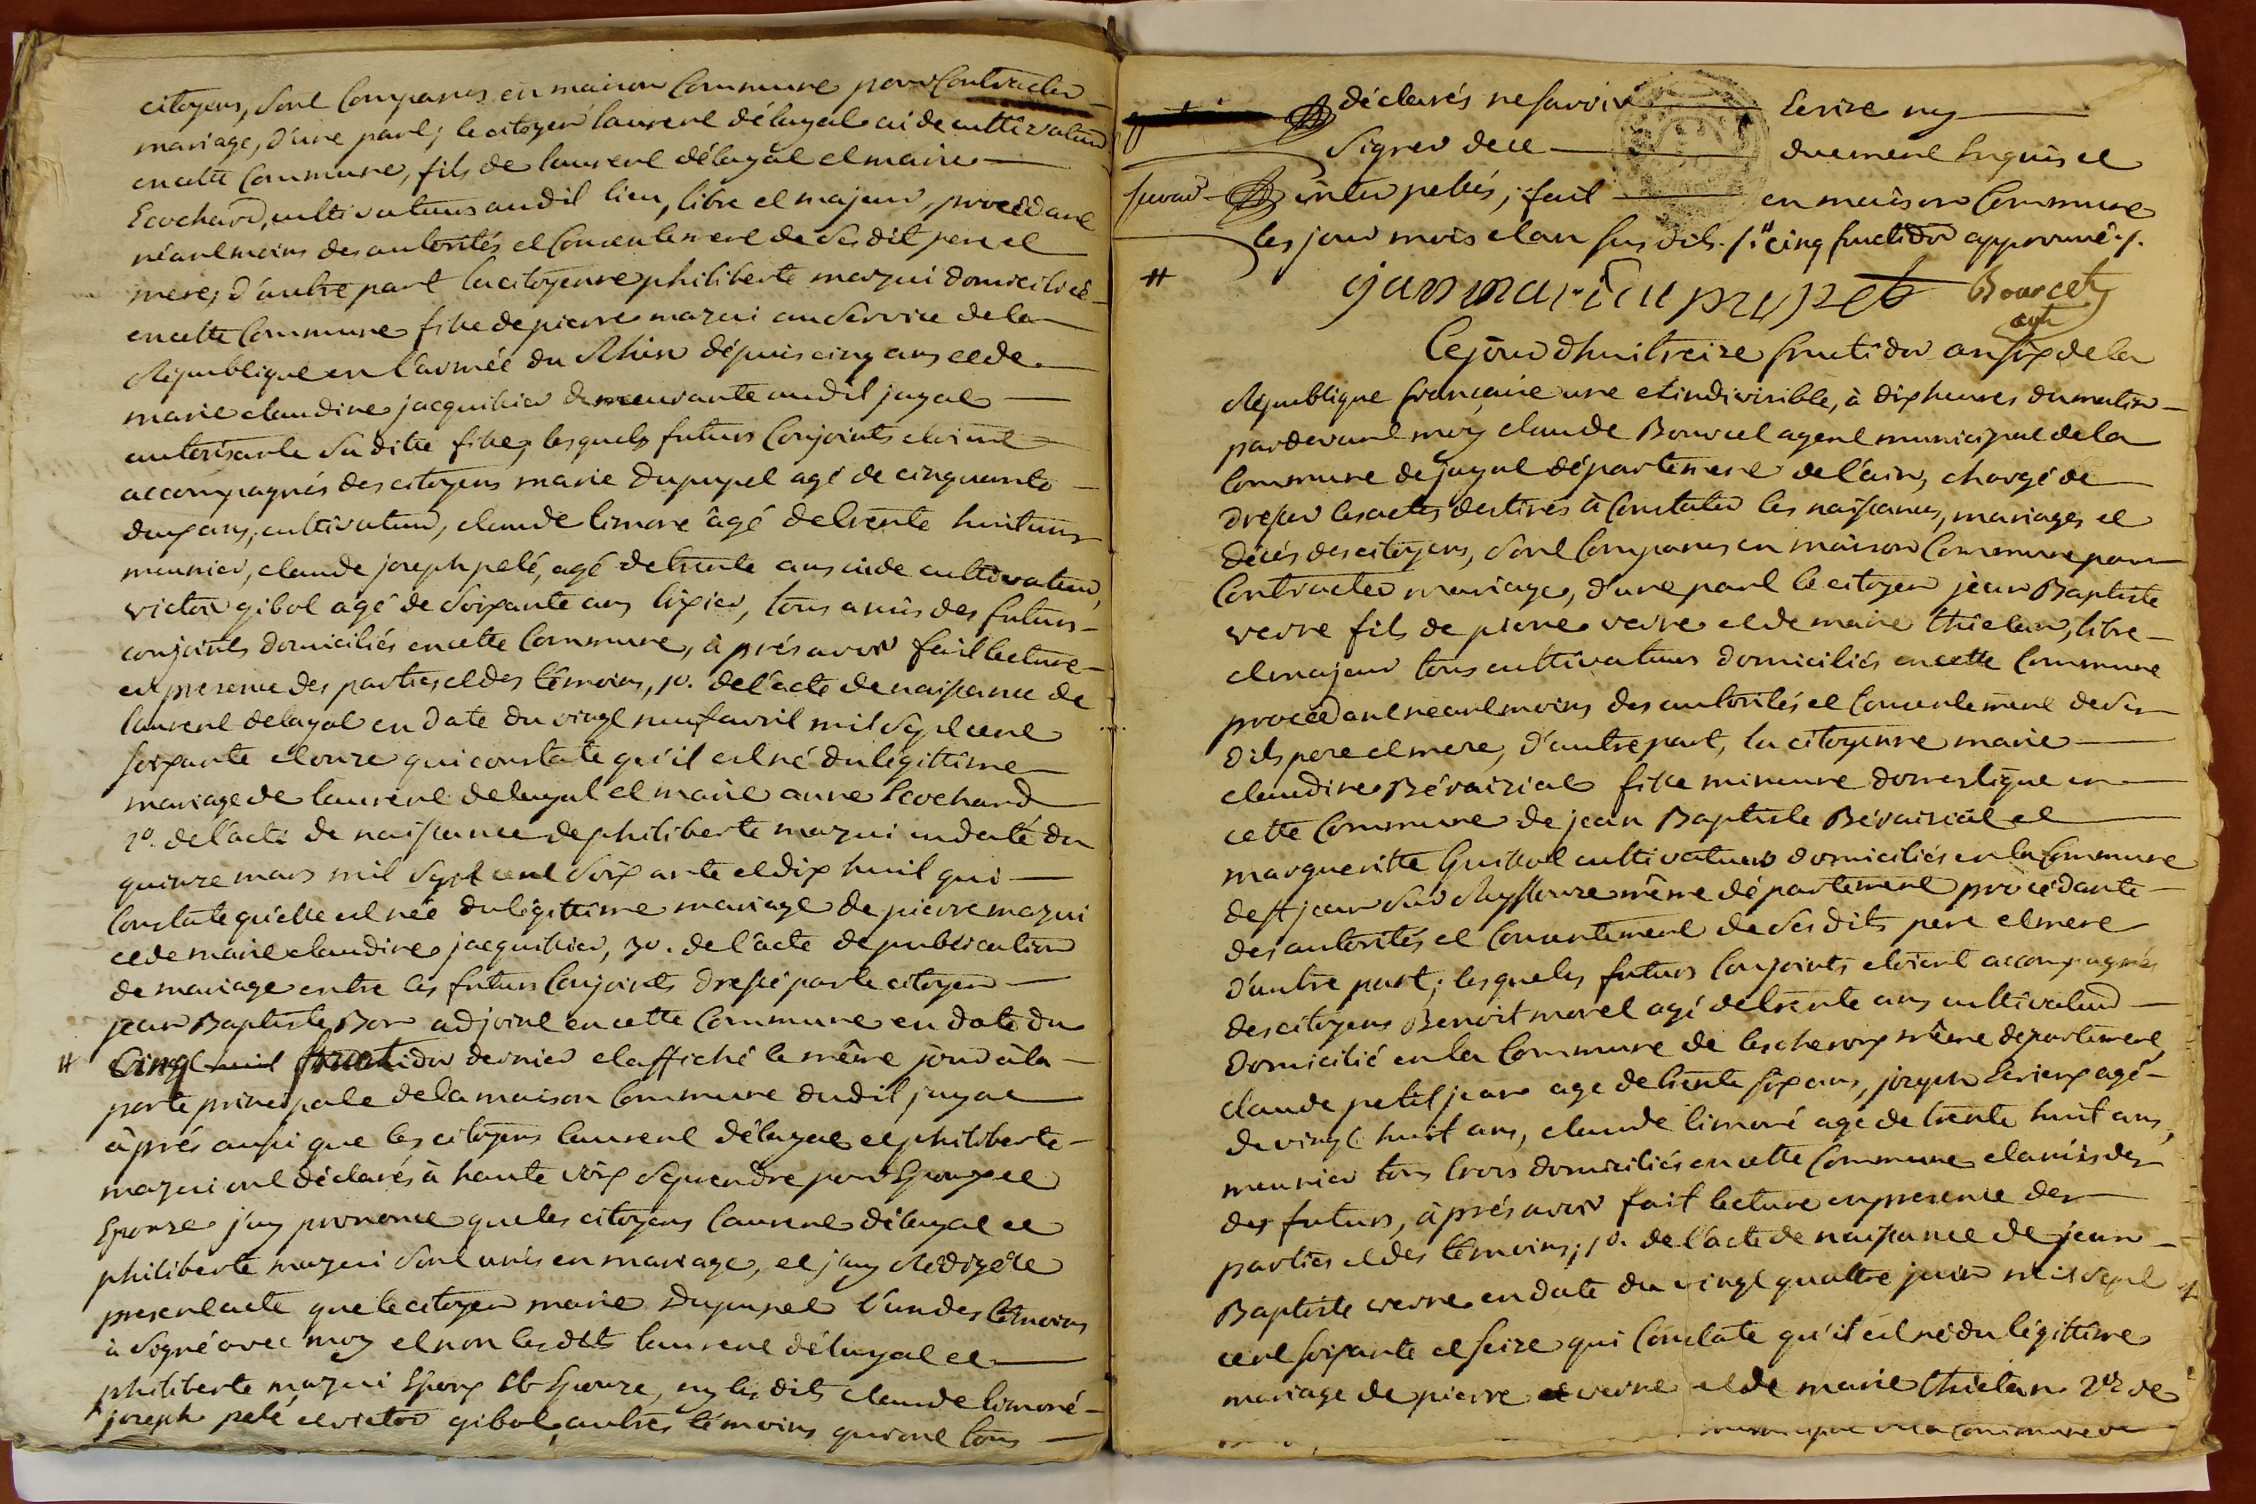 citoyens, sont Comparus en maison Commune pour Contracter
mariage, d'une part; le citoyen laurent délayal aidecultivateur
en cette Commune, fils de laurent délayal et marie
Ecochard, cultivateurs audit lieu, libre et majeur, procédant
néantmoins des autorités et Consentement de ses dit pere et
mere; d'autre part la citoyenne philiberte mazui domiciliée
en cette Commune fille de pierre mazui au service de la
République en l'armée du Rhin dépuis cinq ans et de
marie claudine jacquillier demeurante audit jayat
autorisante sa dite fille, lesquels futurs Conjoints etoient
accompagnés des citoyens marie Dupupet agé de cinquante
deux ans, cultivateur, claude limoné âgé de trente huit ans
meunier, claude joseph pelé, agé de trente ans aide cultivateur,
victor gibot agé de soixante ans tixier, tous amis des futurs
conjoints domiciliés en cette Commune, après avoir fait lecture
en presence des parties et des témoins, 1º. de l'acte de naissance de
laurent delayal en date du vingt neuf avril mil sept cent
soixante et onze qui constate qu'il est né du légittime
mariage de laurent delayal et marie anne Ecochard
2º. de l'acte de naissance de philiberte mazui en date du
quinze mars mil sept cent soixante et dix huit qui
Constate qu'elle est née du légittime mariage de pierre mazui
et de marie claudine jacquillier, 3º. de l'acte de publication
de mariage entre les futurs Conjoints dressé par le citoyen
jean Baptiste Bon adjoint en cette Commune en date du
# Cinq fructidor dernier et affiché le même jour à la
porte principale de la maison Commune dudit jayat
après aussi que les citoyens laurent délayal et philiberte
mazui ont déclarés à haute voix se prendre pour Epoux et
Epouze j'ay prononcé que les citoyens laurent délayal et
philiberte mazui sont unis en mariage, et j'ay rédigé le
present acte que le citoyen marie Dupupet l'un des témoins
à signé avec moy et non lesdits laurent délayal et
philiberte mazui Epoux et Epouze, ny les dits claude limoné
joseph pelé et victor gibot autres témoins qui ont tous
déclarés ne savoir Ecrire ny
signer de ce duement Enquis et
interpellés; fait en maison Commune
les jour mois et an sus dits. /. # cinq fructidor approuvé ./.
#
jan marie du pupet Bourcet
agt
Ce jourd'huit treize fructidor an six de la
République française une et indivisible, à dix heures du matin
pardevant moy claude Bourcet agent municipal de la
Commune de jayat département de l'ain, chargé de
dresser les actes destinés à Constater les naissances, mariages et
décés des citoyens, sont Comparus en maison Commune pour
Contracter mariage, d'une part le citoyen jean Baptiste
verne fils de pierre verne et de marie thielan, libre
et majeur tous cultivateurs domiciliés en cette Commune
procédant néantmoins des autorités et Consentement de ses
dits pere et mere, d'autre part, la citoyenne marie
claudine Bévairial fille mineure domestique en
cette Commune de jean Baptiste Bévairial et
margueritte cultivateurs domiciliés en la Commune
de St jean sur Reyssouze même département procédante
des autorités et Consentement de ses dits pere et mere
d'autre part; lesquels futurs Conjoints etoient accompagnés
des citoyens Benoit morel agé de trente ans cultivateur
domicilié en la Commune de lescheroux même departement,
claude petit jean agé de trente six ans, joseph agé
de vingt huit ans, claude limoné agé de trente huit ans,
meunier tous trois domiciliés en cette Commune et amis des
des futurs, après avoir fait lecture en presence des
parties et des témoins; 1º. de l'acte de naissance de jean
Baptiste verne en date du vingt quattre juin mil sept
cent soixante et seize qui Constate qu'il est né du légittime
mariage de pierre verne et de marie thielan 2º. de
municipal de la Commune de